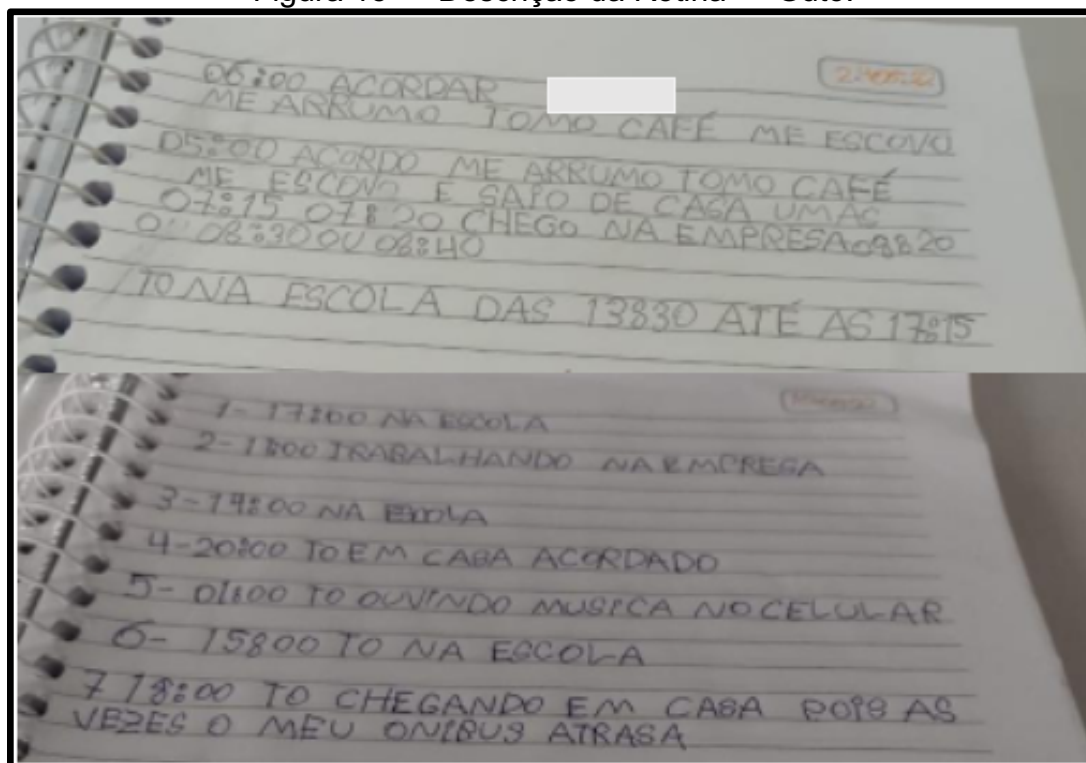 06:00 ACORDAR
ME ARRUMO TOMO CAFÉ ME ESCOVO
05:00 ACORDO ME ARRUMO TOMO CAFÉ
ME ESCOVO E SAIO DE CASA UMAS
07:15 07:20 CHEGO NA EMPRESA 08:20
OU 08:30 OU 08:40
TO NA ESCOLA DAS 13:30 ATÉ AS 17:15
1- 17:00 NA ESCOLA
2- TRABALHANDO NA EMPRESA
3- NA
4-20:00 TO EM CASA ACORDADO
5- 01:00 TO OUVINDO MUSICA NO CELULAR
6- 15:00 TO NA ESCOLA
7 18:00 TO CHEGANDO EM CASA POIS AS
VEZES O MEU ONIBUS ATRASA